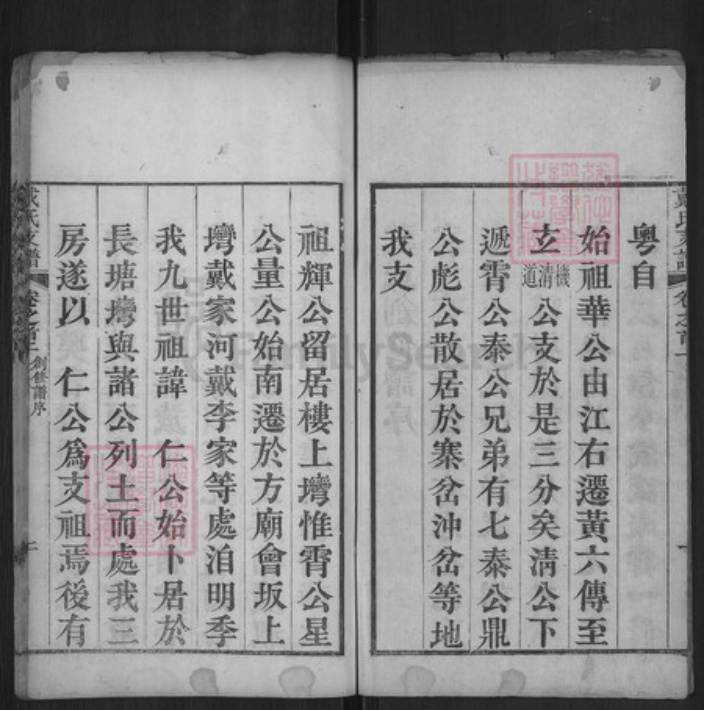 粵自
始祖華公由江右遷黃六傳至
玄機清道公支於是三分矣淸公下
遞霄公泰公兄弟有七泰公鼎
公彪公散居於寨岔沖岔等地
我支
祖輝公留居樓上壪惟霄公星
公量公始南遷於方廟會坂上
壪戴家河戴李家等處洎明季
我九世祖諱 仁公始卜居於
長塘壪與諸公列土而處我三
房遂以 仁公爲支祖焉後有
戴氏支譜 卷之首 創修譜序
FamilySearch